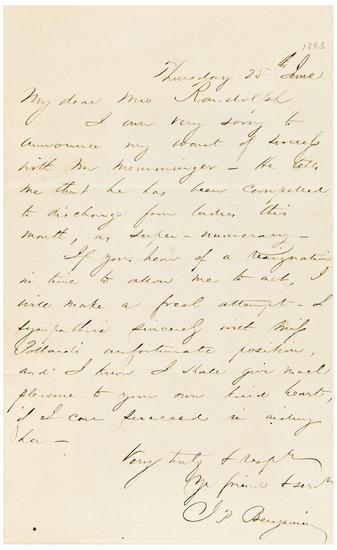 1863
Thursday 25th June
My dear Mrs Randolph
I am very sorry to
announce my want of success
with Mr Memminger – He tells
me that he has been compelled
to discharge four ladies this
month, as super-numerary –
If you hear of a resignation
in time to allow me to act, I
will make a fresh attempt – I
sympathise sincerely with Miss
Pollard's unfortunate position,
and I know I shall give much
pleasure to your own kind heart,
if I can succeed in aiding
her –
Very truly & resply
Yr friend & servt
J P Benjamin